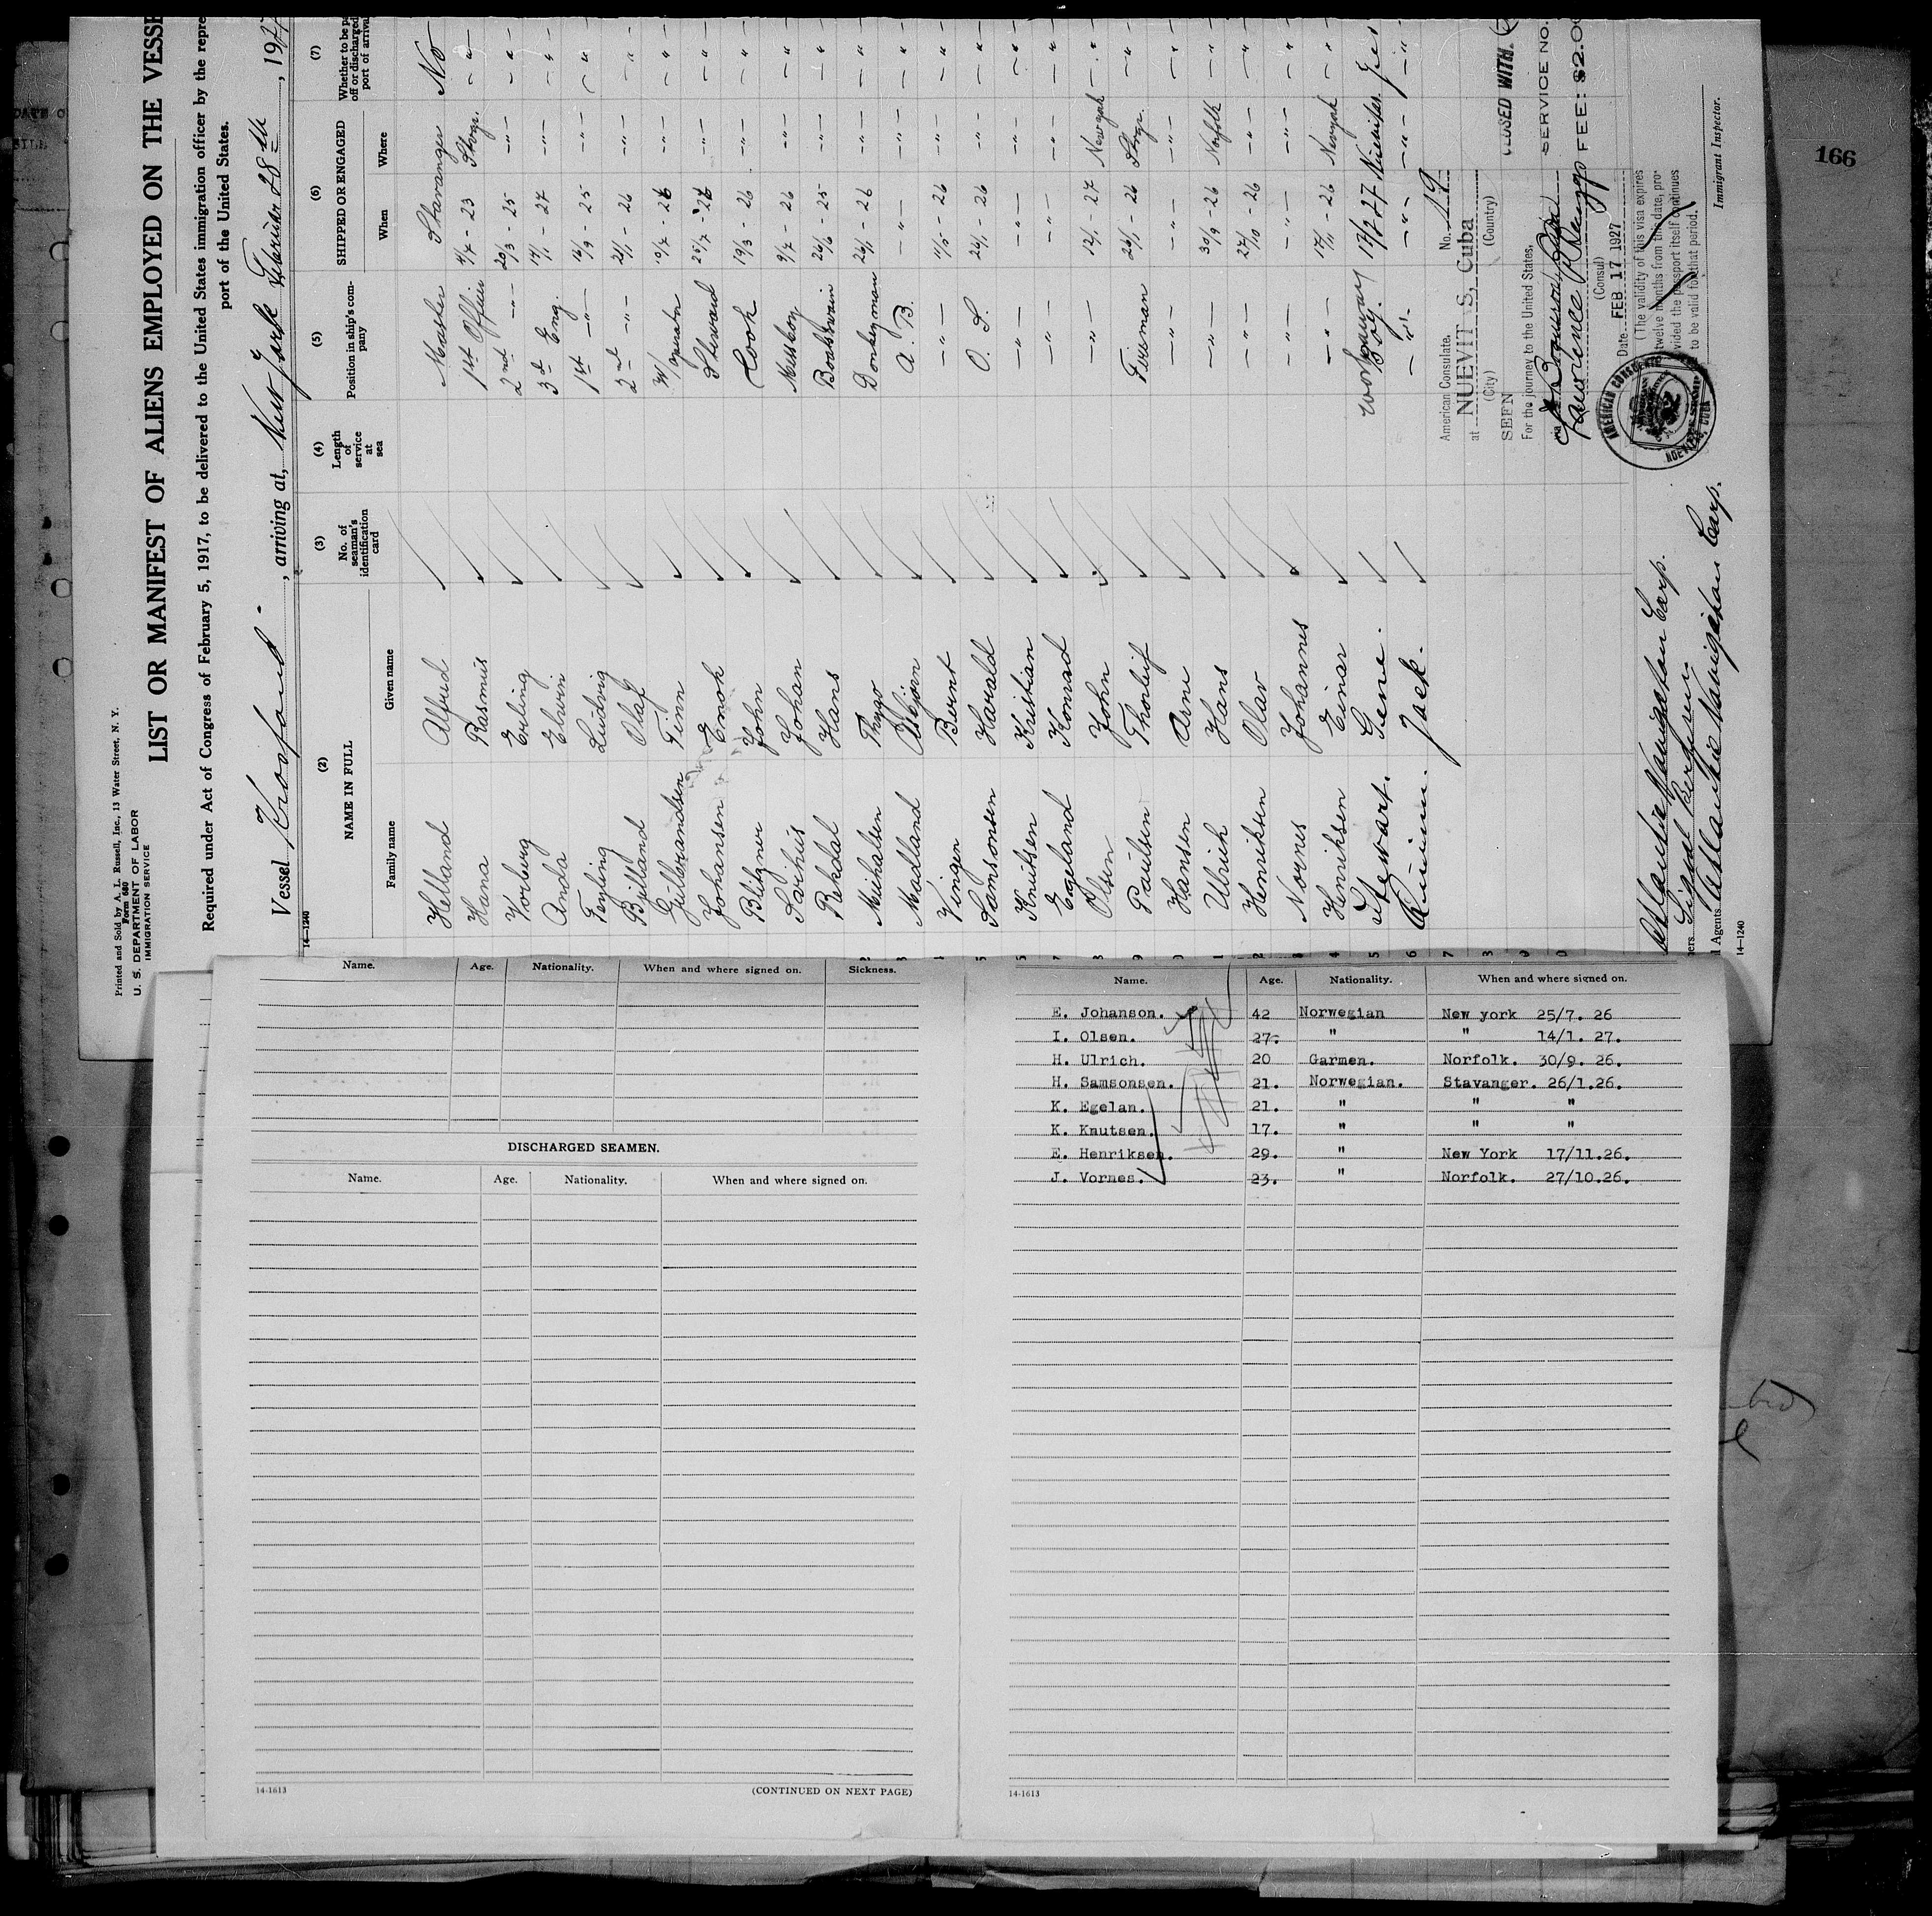 166
Printed and Sold by A. L. Russell, Inc., 13 Water Street, N. Y.
Form 680
U. S. DEPARTMENT OF LABOR
IMMIGRATION SERVICE
LIST OR MANIFEST OF ALIENS EMPLOYED ON THE VESSE
Required under Act of Congress of February 5, 1917, to be delivered to the United States immigration officer by the repre
port of the United States.
Vessel , arriving at, New York 28th , 1927
14—1240
(2) (3) (4) (5) (6) (7)
NAME IN FULL No. of seaman's identification card Length of service at sea Position in ship's company SHIPPED OR ENGAGED Whether to be p off or discharged port of arriva
Family name Given name When Where
Helland Alfred Master Stavanger No
Hana Rasmus 1st Officer 4/7 - 23 Stvgr. -"-
Vorberg Erling 2nd -"- 20/3 - 25 -"- -"-
Anda Edwin 3d Eng. 14/1 - 27 -"- -"-
Feyling Ludvig 1st -"- 16/9 - 25 -"- -"-
Bjelland Olaf 2nd -"- 26 -"- -"-
Gulbrandsen Finn W/operator 10/7 - 26 -"- -"-
Johansen Enok Steward 25/7 - 26 -"- -"-
Blitzner John Cook 19/3 - 26 -"- -"-
Johan Messboy 9/7 - 26 -"- -"-
Rekdal Hans Boatswain 26/6 - 25 -"- -"-
Michalsen Trygo Donkeyman 26/11 - 26 -"- -"-
Madland Asbjørn A. B. -"- -"- -"-
Vingen Bernt -"- 11/5 - 26 -"- -"-
Samsonsen Harald O. S. 26/1 - 26 -"- -"-
Knutsen Kristian -"- -"- -"- -"-
Egeland Konrad -"- -"- -"- -"-
Olsen John -"- 12/1 - 27 New york -"-
Paulsen Thorleif Fireman 26/1 - 26 Stvgr. -"-
Hansen Arne -"- -"- -"- -"-
Ulrich Hans -"- 30/9 - 26 Norfolk -"-
Henriksen Olav -"- 27/10 - 26 -"- -"-
Nornes Johannes -"- -"- -"- -"-
Henriksen Einar -"- 17/11 - 26 New york -"-
Stewart. Gene. workaway Boy. 17/2 27 Nuevitas. Yes
Jack. -"- -"- -"- -"-
American Consulate. No. 19
at NUEVITAS, Cuba
(City) (Country)
SEEN
For the journey to the United States,
Lawrence
(Consul)
Date FEB 17 1927
(The validity of this visa expires
twelve months from this date, pro-
vided the passport itself continues
to be valid for that period.)
CLOSED WITH.
SERVICE NO.
FEE: $2.00
AMERICAN CONSULAR
NUEVITAS, CUBA
Atlantic Navigation Corp.
ers Sigval Bergesen
Agents Atlantic Navigation Corp.
Immigrant Inspector.
14—1240
Name. Age. Nationality. When and where signed on. Sickness.
DISCHARGED SEAMEN.
Name. Age. Nationality. When and where signed on.
14-1613 (CONTINUED ON NEXT PAGE)
Name. Age. Nationality. When and where signed on.
E. Johanson. 42 Norwegian New york 25/7. 26
I. Olsen. 27. " " 14/1. 27.
H. Ulrich. 20 Garmen. Norfolk. 30/9. 26.
H. Samsonsen. 21. Norwegian. Stavanger. 26/1.26.
K. Egelan. 21. " " "
K. Knutsen. 17. " " "
E. Henriksen. 29. " New York 17/11.26.
J. Vornes. 23. " Norfolk. 27/10.26.
14-1613